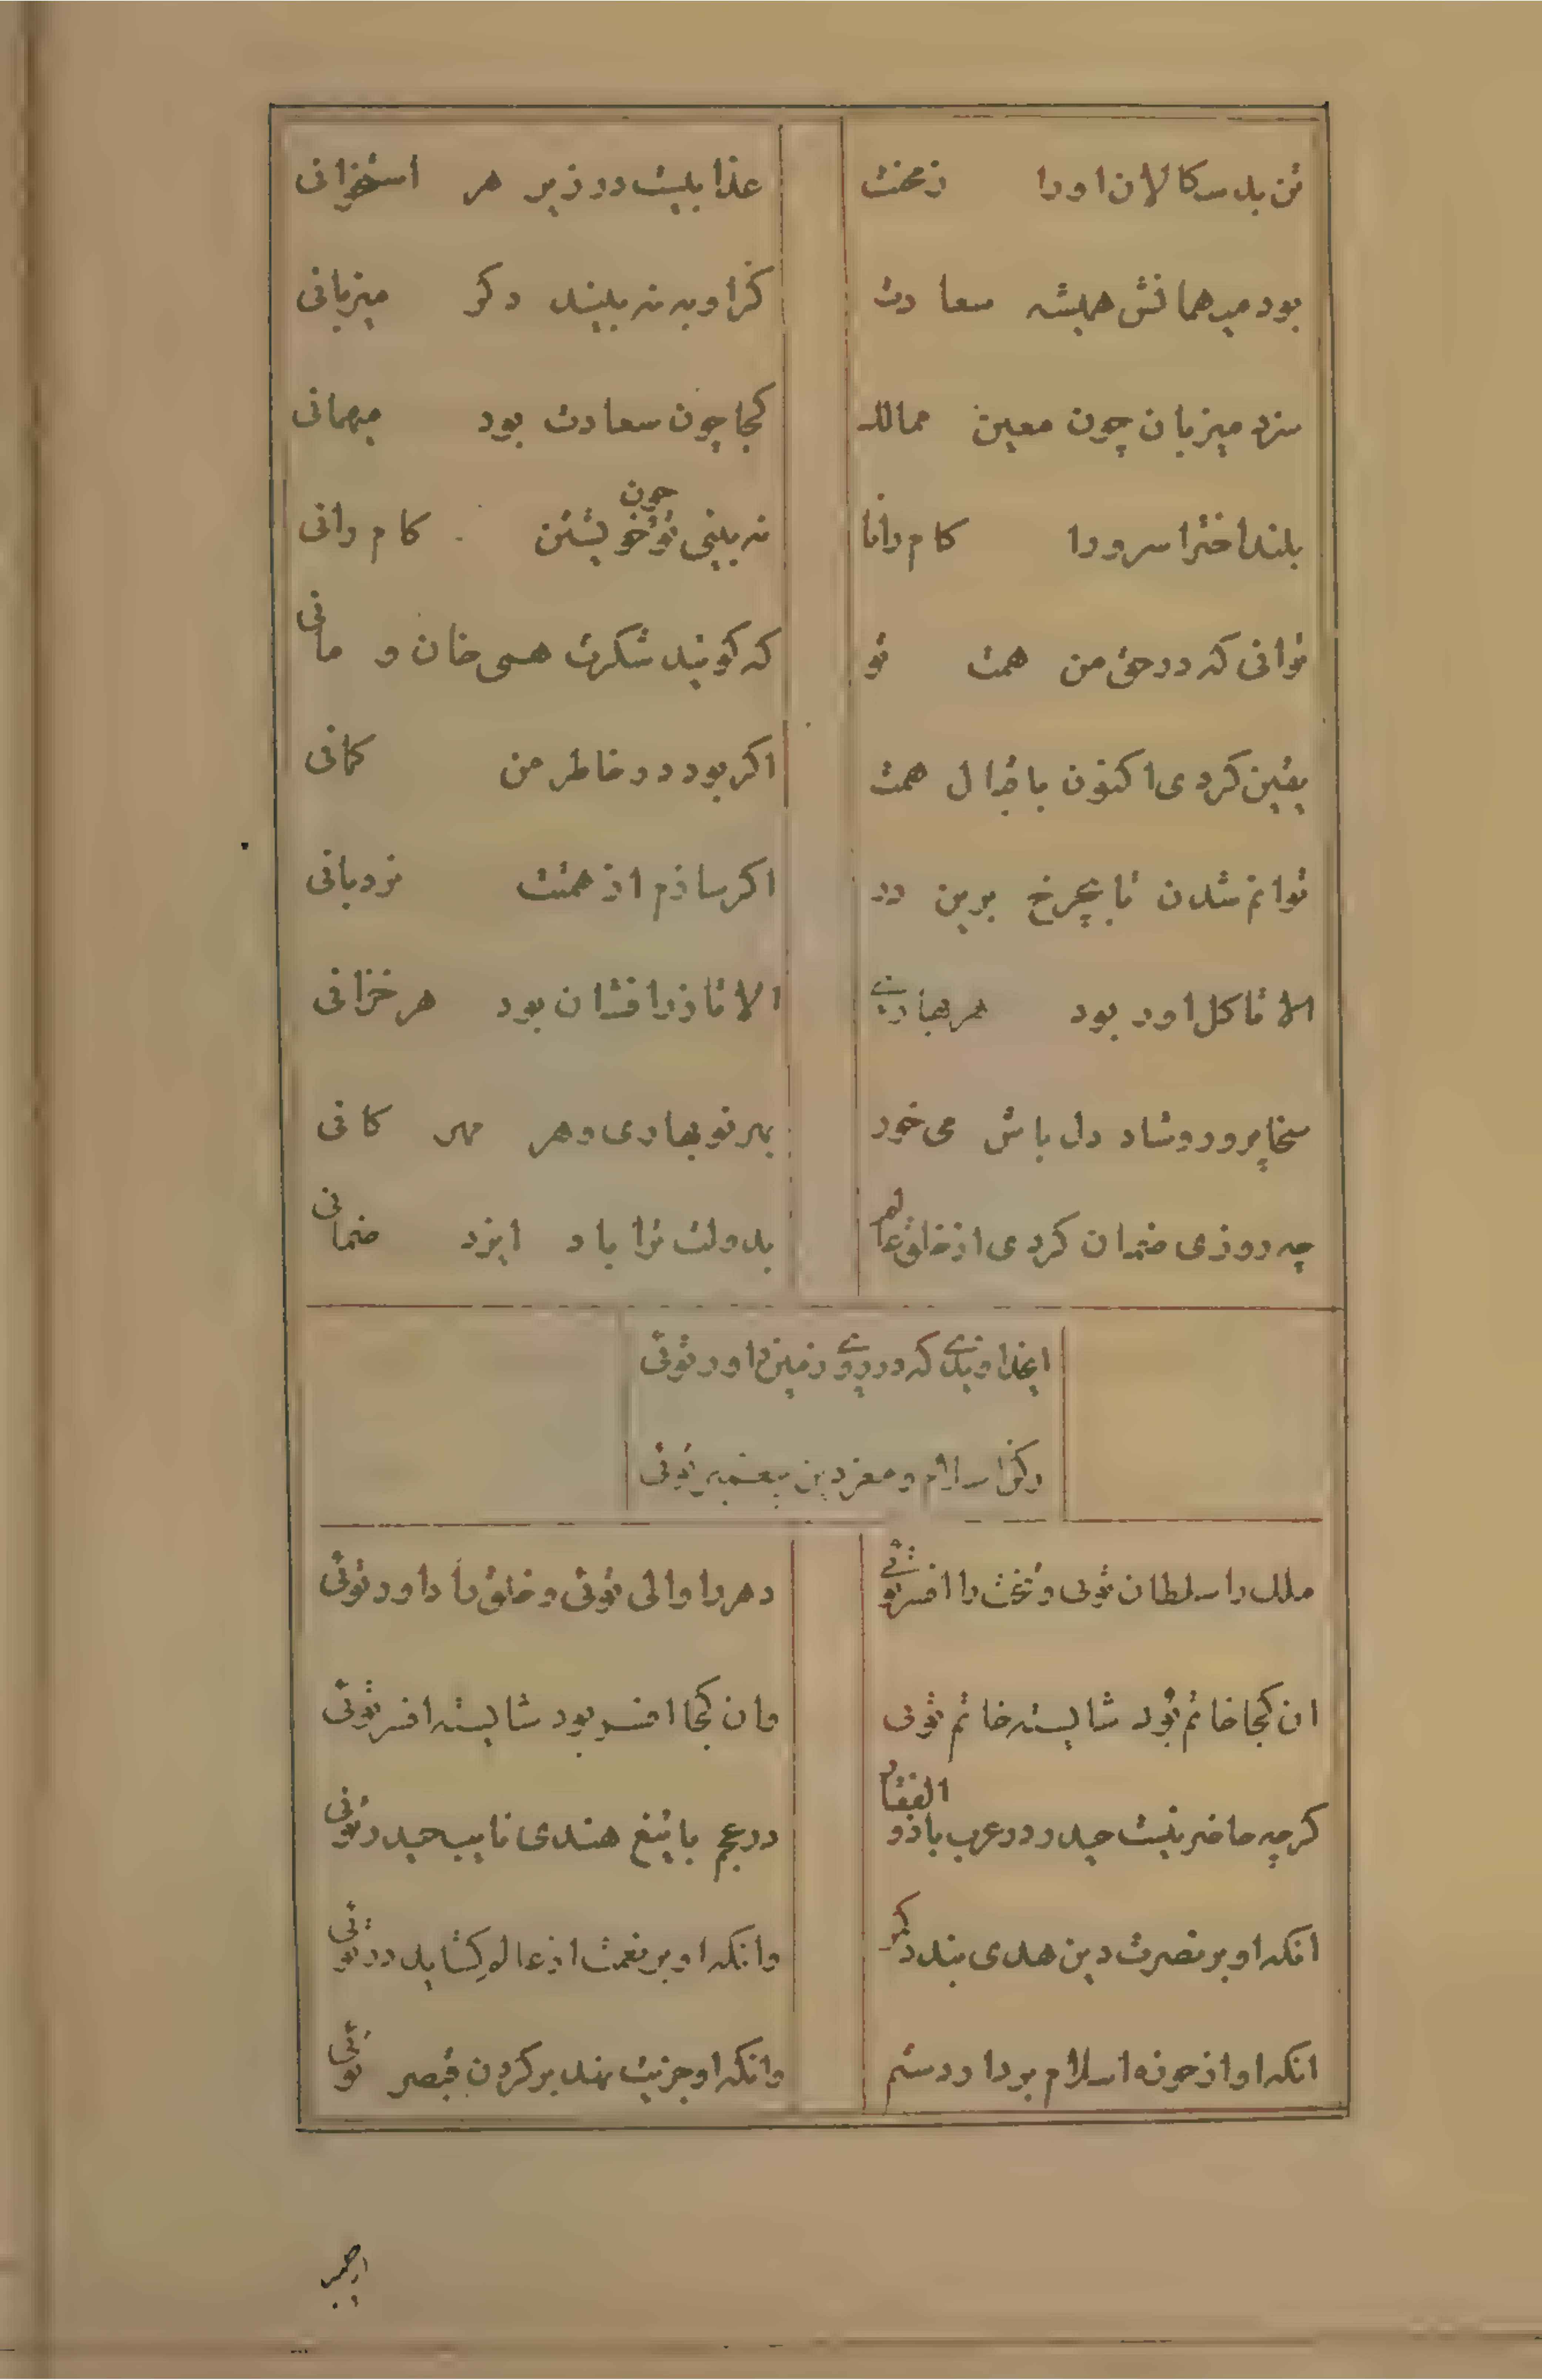 تن بد سکالان او را ز محنت
عذابیست در زیر هر استخوانی
بود میهمانش همیشه سعادت
کزو به نه بیند دکر میزبانی
سزد میزبان چون معین ممالک
کجا چون سعادت بود میهمانی
بلند اخترا سرورا کام رانا
نه بینی تو چون خویشتن کام رانی
توانی که در حق من همت تو
که کویند شکرت همی خان و مانی
یقین کردی اکنون باقبال همت
اکر بود در خاطر من کمانی
توانم شدن تا بچرخ برین در
اکر سازم از همتت نردبانی
الا تا کل اور بود هر بهاری
الا تا زر افشان بود هر خزانی
سخا پرور و شاد دل باش می خور
بهر نو بهاری و هر مهر کانی
چه روزی ضمان کردی از خلق عالم
بدولت ترا باد ایزد ضمانی
ایخداوندی که در روی زمین داور توئی
رکن اسلام و معز دین پیغمبر توئی
ملک را سلطان توئی و تخت را افسر توئی
دهر را والی توئی و خلق را داور توئی
ان کجا خاتم بود شایسته خاتم توئی
وان کجا افسر بود شایسته افسر توئی
کرچه حاضر نیست حیدر در عرب با ذو الفقار
در عجم با تیغ هندی نایب حیدر توئی
انکه او بر نصرت دین هدی بندد کمر
وانکه او بر نعمت از عالم کشاید در توئی
انکه او از حوزه اسلام بردارد ستم
وانکه او جزیت نهد بر کردن قیصر توئی